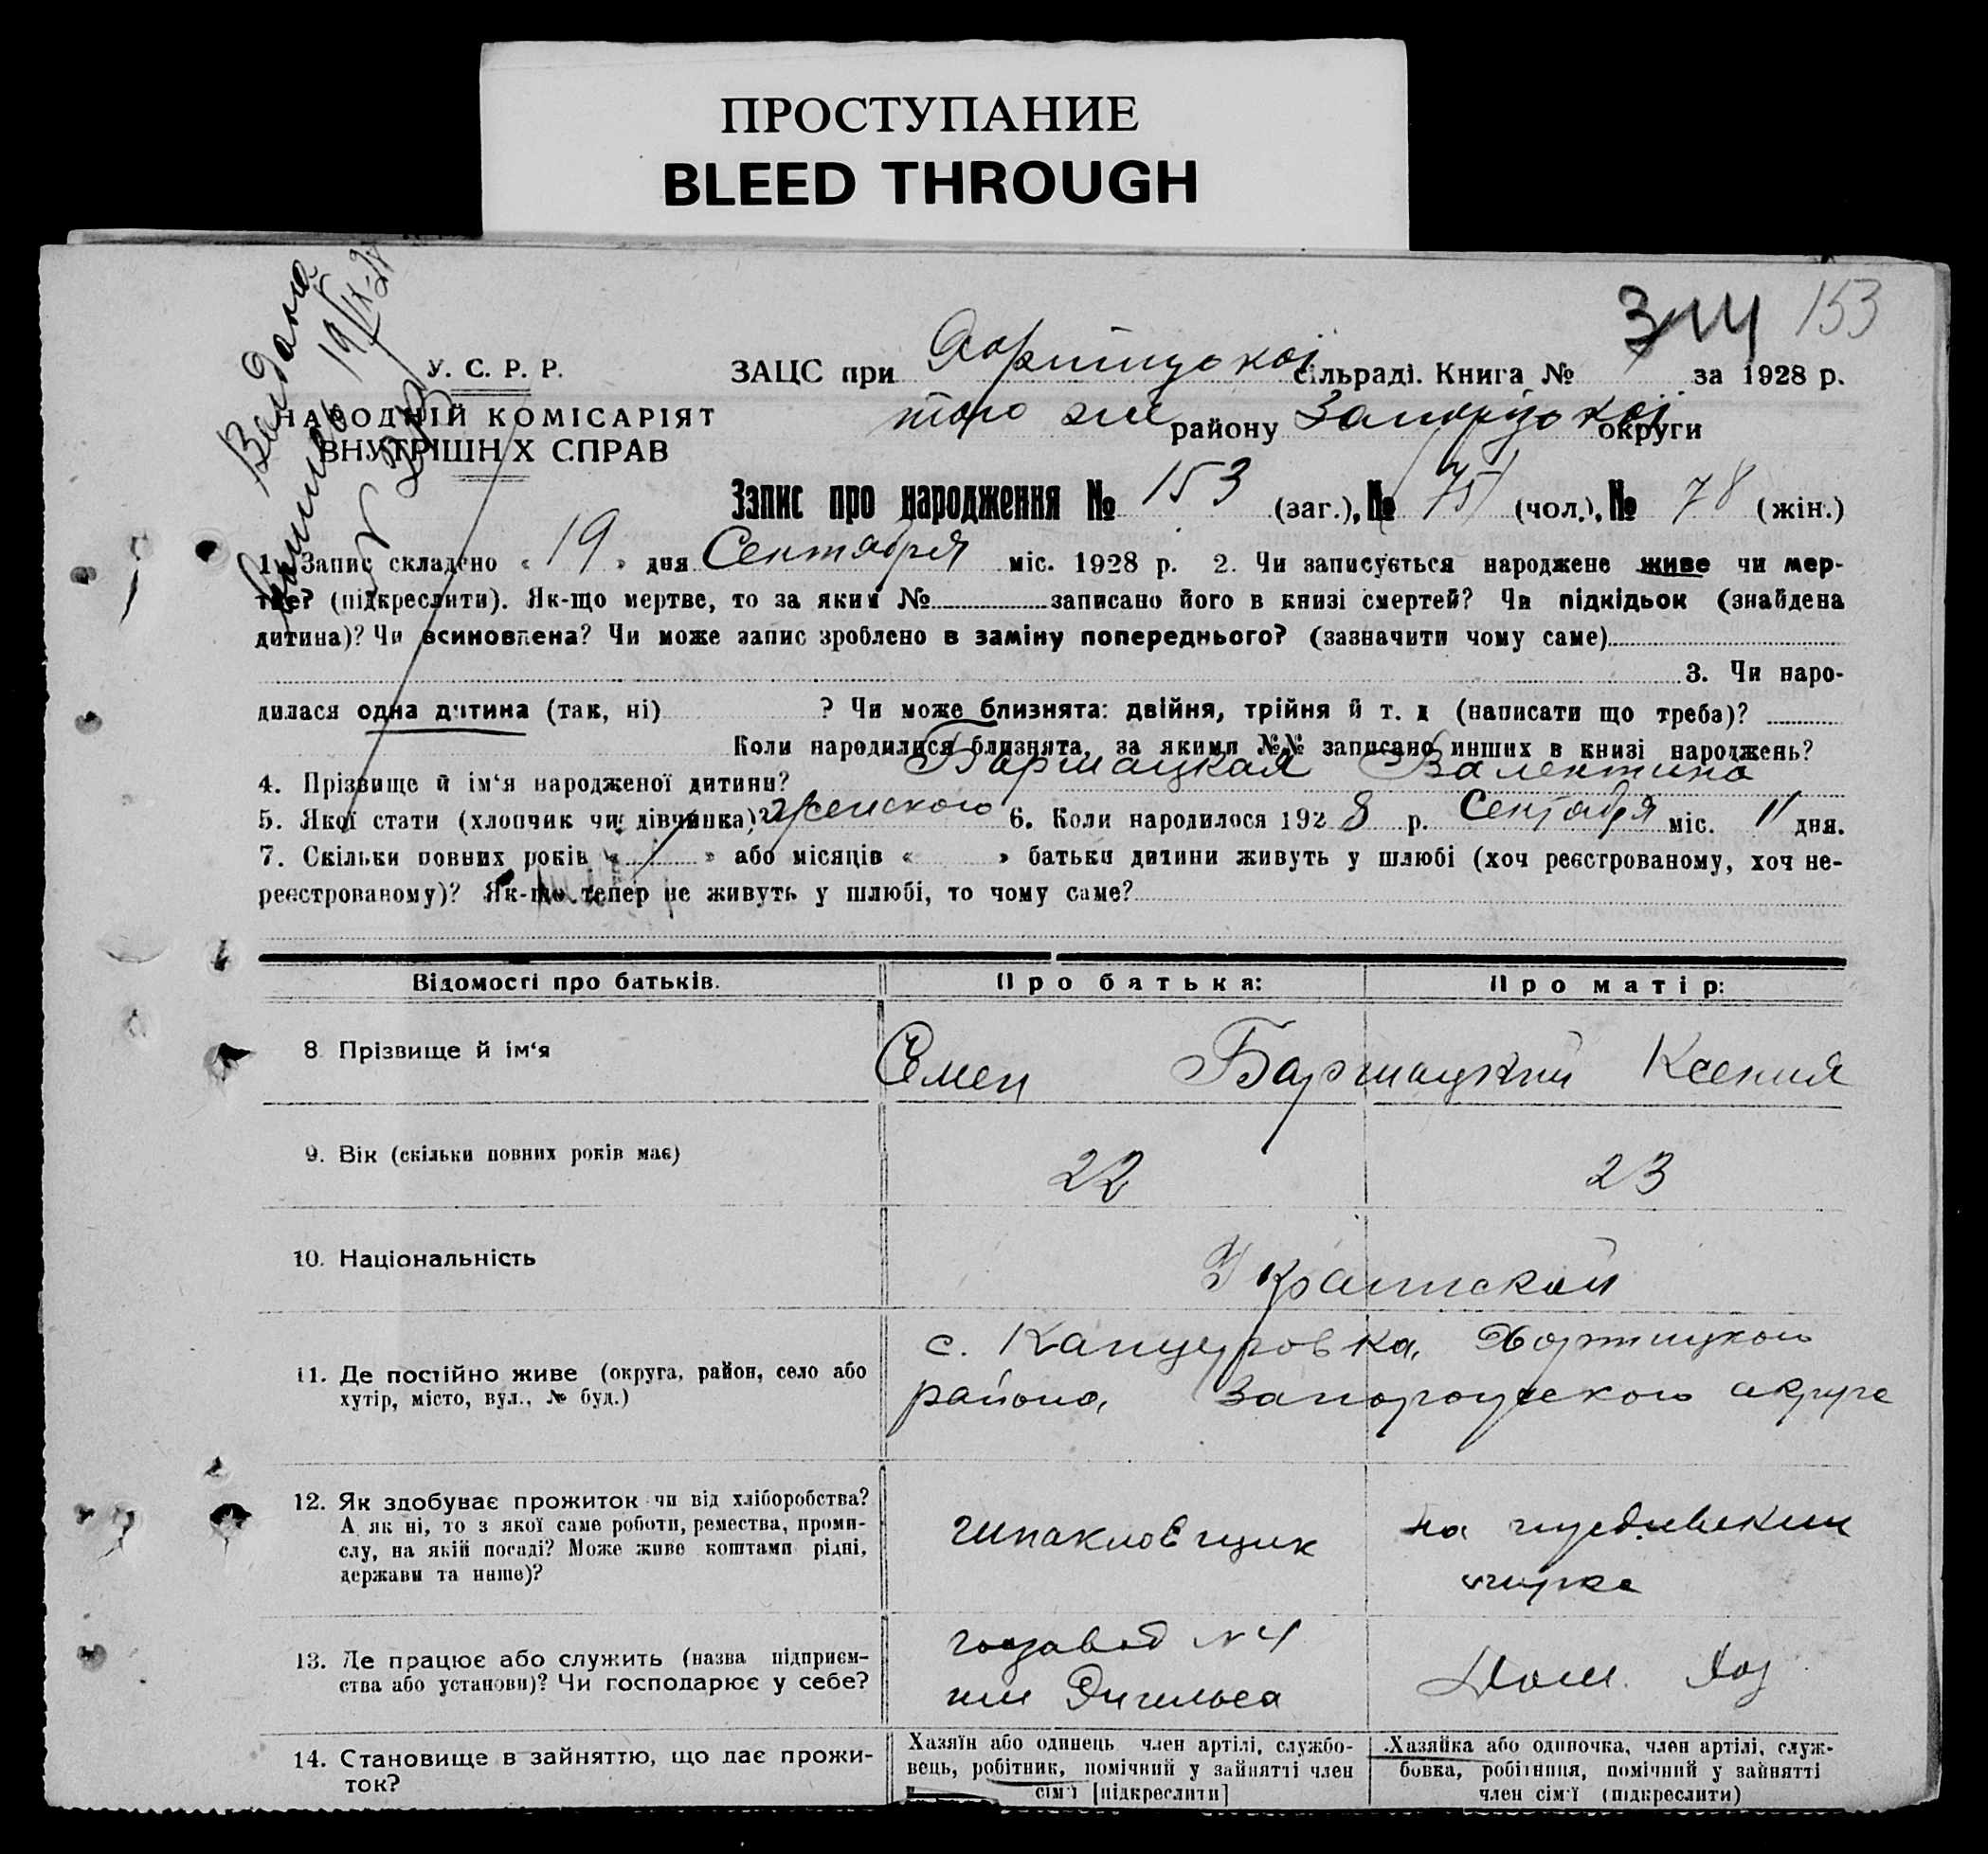 ПРОСТУПАНИЕ
BLEED THROUGH
153
У. С. Р. Р.
НАРОДНІЙ КОМІСАРІЯТ
ВНУТРІШНІХ СПРАВ
Видана
19/IX-28
ЗАЦС при Хортицькоі сільраді. Книга № за 1928 р.
того же району Запорізькоі округи
Запис про народження № 153 (заг.), № 75 (чол.), № 78 (жін.)
1. Запис складено « 19 » дня Сентября міс. 1928 р. 2. Чи записується народжене живе чи мер-
тве? (підкреслити). Як-що мертве, то за яким № записано його в книзі смертей? Чи підкідьок (знайдена
дитина)? Чи всиновлена? Чи може запис зроблено в заміну попереднього? (зазначити чому саме)
3. Чи наро-
дилася одна дитина (так, ні) ? Чи може близнята: двійня, трійня й т. д (написати що треба)?
Коли народилися близнята, за якими №№ записано инших в книзі народжень?
4. Прізвище й ім‘я народженої дитини? Бармацкая Валентина
5. Якої стати (хлопчик чи дівчинка)? женского 6. Коли народилося 1928 р. Сентября міс. 11 дня.
7. Скільки повних років « » або місяців « » батьки дитини живуть у шлюбі (хоч реєстрованому, хоч не-
реєстрованому)? Як-що тепер не живуть у шлюбі, то чому саме?
Відомості про батьків. Про батька: Про матір:
8 Прізвище й ім‘я Семен Бармацкий Ксения
9. Вік (скільки повних років має) 22 23
10. Національність Украинской
11. Де постійно живе (округа, район, село або
хутір, місто, вул., № буд.)
с. Канцеровка, Хортицкого
района, Запорожского округа
12. Як здобуває прожиток чи від хліборобства?
А як ні, то з якої саме роботи, ремества, проми-
слу, на якій посаді? Може живе коштами рідні,
держави та инше)?
шпакловщик
на иждивении
мужа
13. Де працює або служить (назва підприєм-
ства або установи)? Чи господарює у себе?
госзавод № 4
им Энгельса
Дом. Хоз
14. Становище в зайняттю, що дає прожи-
ток?
Хазяїн або одинець член артілі, службо-
вець, робітник, помічний у зайнятті член
сім‘ї [підкреслити]
Хазяйка або одиночка, член артілі, служ-
бовка, робітниця, помічний у зайнятті
член сім‘ї (підкреслити)